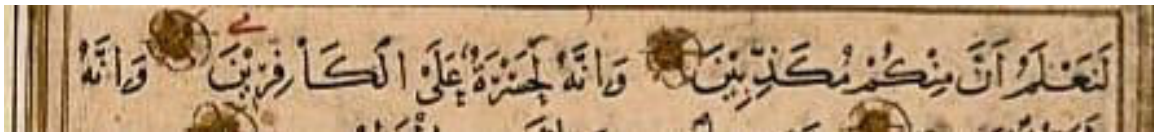 لَنَعْلَمُ اَنَّ مِنْكُمْ مُكَذِّبِيْنَ وَاِنَّهُ لَحَسْرَةٌ عَلَى الْكَافِرِيْنَ وَاِنَّهُ